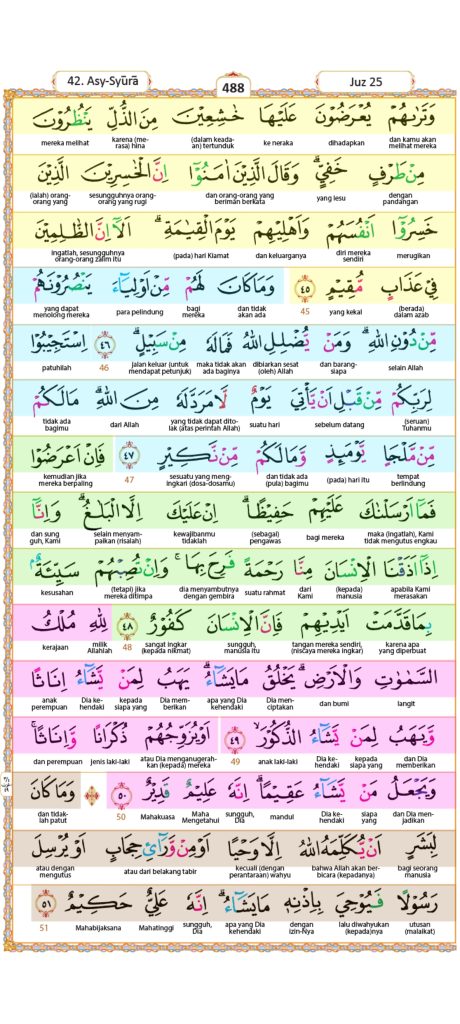 42. Asy-Syūrā
488
Juz 25
وَتَرٰىهُمْ يُعْرَضُوْنَ عَلَيْهَا خٰشِعِيْنَ مِنَ الذُّلِّ يَنْظُرُوْنَ
dan kamu akan melihat mereka dihadapkan ke neraka (dalam keada-an) tertunduk karena (me-rasa) hina mereka melihat
مِنْ طَرْفٍ خَفِيٍّۗ وَقَالَ الَّذِيْنَ اٰمَنُوْٓا اِنَّ الْخٰسِرِيْنَ الَّذِيْنَ
dengan pandangan yang lesu dan orang-orang yang beriman berkata sesungguhnya orang-orang yang rugi (ialah) orang-orang yang
خَسِرُوْٓا اَنْفُسَهُمْ وَاَهْلِيْهِمْ يَوْمَ الْقِيٰمَةِۗ اَلَآ اِنَّ الظّٰلِمِيْنَ
merugikan diri mereka sendiri dan keluarganya (pada) hari Kiamat ingatlah, sesungguhnya orang-orang zalim itu
فِيْ عَذَابٍ مُّقِيْمٍ ٤٥ وَمَا كَانَ لَهُمْ مِّنْ اَوْلِيَاۤءَ يَنْصُرُوْنَهُمْ
(berada) dalam azab yang kekal 45 dan tidak akan ada bagi mereka para pelindung yang dapat menolong mereka
مِّنْ دُوْنِ اللّٰهِۗ وَمَنْ يُّضْلِلِ اللّٰهُ فَمَا لَهٗ مِنْ سَبِيْلٍۗ ٤٦ اِسْتَجِيْبُوْا
selain Allah dan barang-siapa dibiarkan sesat (oleh) Allah maka tidak akan ada baginya jalan keluar (untuk mendapat petunjuk) 46 patuhilah
لِرَبِّكُمْ مِّنْ قَبْلِ اَنْ يَّأْتِيَ يَوْمٌ لَّا مَرَدَّ لَهٗ مِنَ اللّٰهِۗ مَا لَكُمْ
(seruan) Tuhanmu sebelum datang suatu hari yang tidak dapat dito-lak (atas perintah Allah) dari Allah tidak ada bagimu
مِّنْ مَّلْجَاٍ يَّوْمَىِٕذٍ وَّمَا لَكُمْ مِّنْ نَّكِيْرٍ ٤٧ فَاِنْ اَعْرَضُوْا
tempat berlindung (pada) hari itu dan tidak ada (pula) bagimu sesuatu yang meng-ingkari (dosa-dosamu) 47 kemudian jika mereka berpaling
فَمَآ اَرْسَلْنٰكَ عَلَيْهِمْ حَفِيْظًاۗ اِنْ عَلَيْكَ اِلَّا الْبَلٰغُۗ وَاِنَّآ
maka (ingatlah), Kami tidak mengutus engkau bagi mereka (sebagai) pengawas kewajibanmu tidaklah selain menyam-paikan (risalah) dan sung guh, Kami
اِذَآ اَذَقْنَا الْاِنْسَانَ مِنَّا رَحْمَةً فَرِحَ بِهَاۚ وَاِنْ تُصِبْهُمْ سَيِّئَةٌ ۢ
apabila Kami merasakan (kepada) manusia dari Kami suatu rahmat dia menyambutnya dengan gembira (tetapi) jika mereka ditimpa kesusahan
بِمَا قَدَّمَتْ اَيْدِيْهِمْ فَاِنَّ الْاِنْسَانَ كَفُوْرٌ ٤٨ لِلّٰهِ مُلْكُ
karena apa yang diperbuat tangan mereka sendiri, (niscaya mereka ingkar) sungguh, manusia itu sangat ingkar (kepada nikmat) 48 milik Allahlah kerajaan
السَّمٰوٰتِ وَالْاَرْضِۗ يَخْلُقُ مَا يَشَاۤءُۗ يَهَبُ لِمَنْ يَّشَاۤءُ اِنَاثًا
langit dan bumi Dia men-ciptakan apa yang Dia kehendaki Dia mem-berikan kepada siapa yang Dia ke-hendaki anak perempuan
وَّيَهَبُ لِمَنْ يَّشَاۤءُ الذُّكُوْرَ ۙ ٤٩ اَوْ يُزَوِّجُهُمْ ذُكْرَانًا وَّاِنَاثًاۚ
dan Dia memberikan kepada siapa yang Dia ke-hendaki anak laki-laki 49 atau Dia menganugerah-kan (kepada) mereka jenis laki-laki dan perempuan
وَيَجْعَلُ مَنْ يَّشَاۤءُ عَقِيْمًاۗ اِنَّهٗ عَلِيْمٌ قَدِيْرٌ ٥٠ وَمَا كَانَ
dan Dia men-jadikan siapa yang Dia ke-hendaki mandul sungguh, Dia Maha Mengetahui Mahakuasa 50 dan tidak-lah patut
لِبَشَرٍ اَنْ يُّكَلِّمَهُ اللّٰهُ اِلَّا وَحْيًا اَوْ مِنْ وَّرَاۤئِ حِجَابٍ اَوْ يُرْسِلَ
bagi seorang manusia bahwa Allah akan ber-bicara (kepadanya) kecuali (dengan perantaraan) wahyu atau dari belakang tabir atau dengan mengutus
رَسُوْلًا فَيُوْحِيَ بِاِذْنِهٖ مَا يَشَاۤءُۗ اِنَّهٗ عَلِيٌّ حَكِيْمٌ ٥١
utusan (malaikat) lalu diwahyukan (kepada)nya dengan izin-Nya apa yang Dia kehendaki sungguh, Dia Mahatinggi Mahabijaksana 51